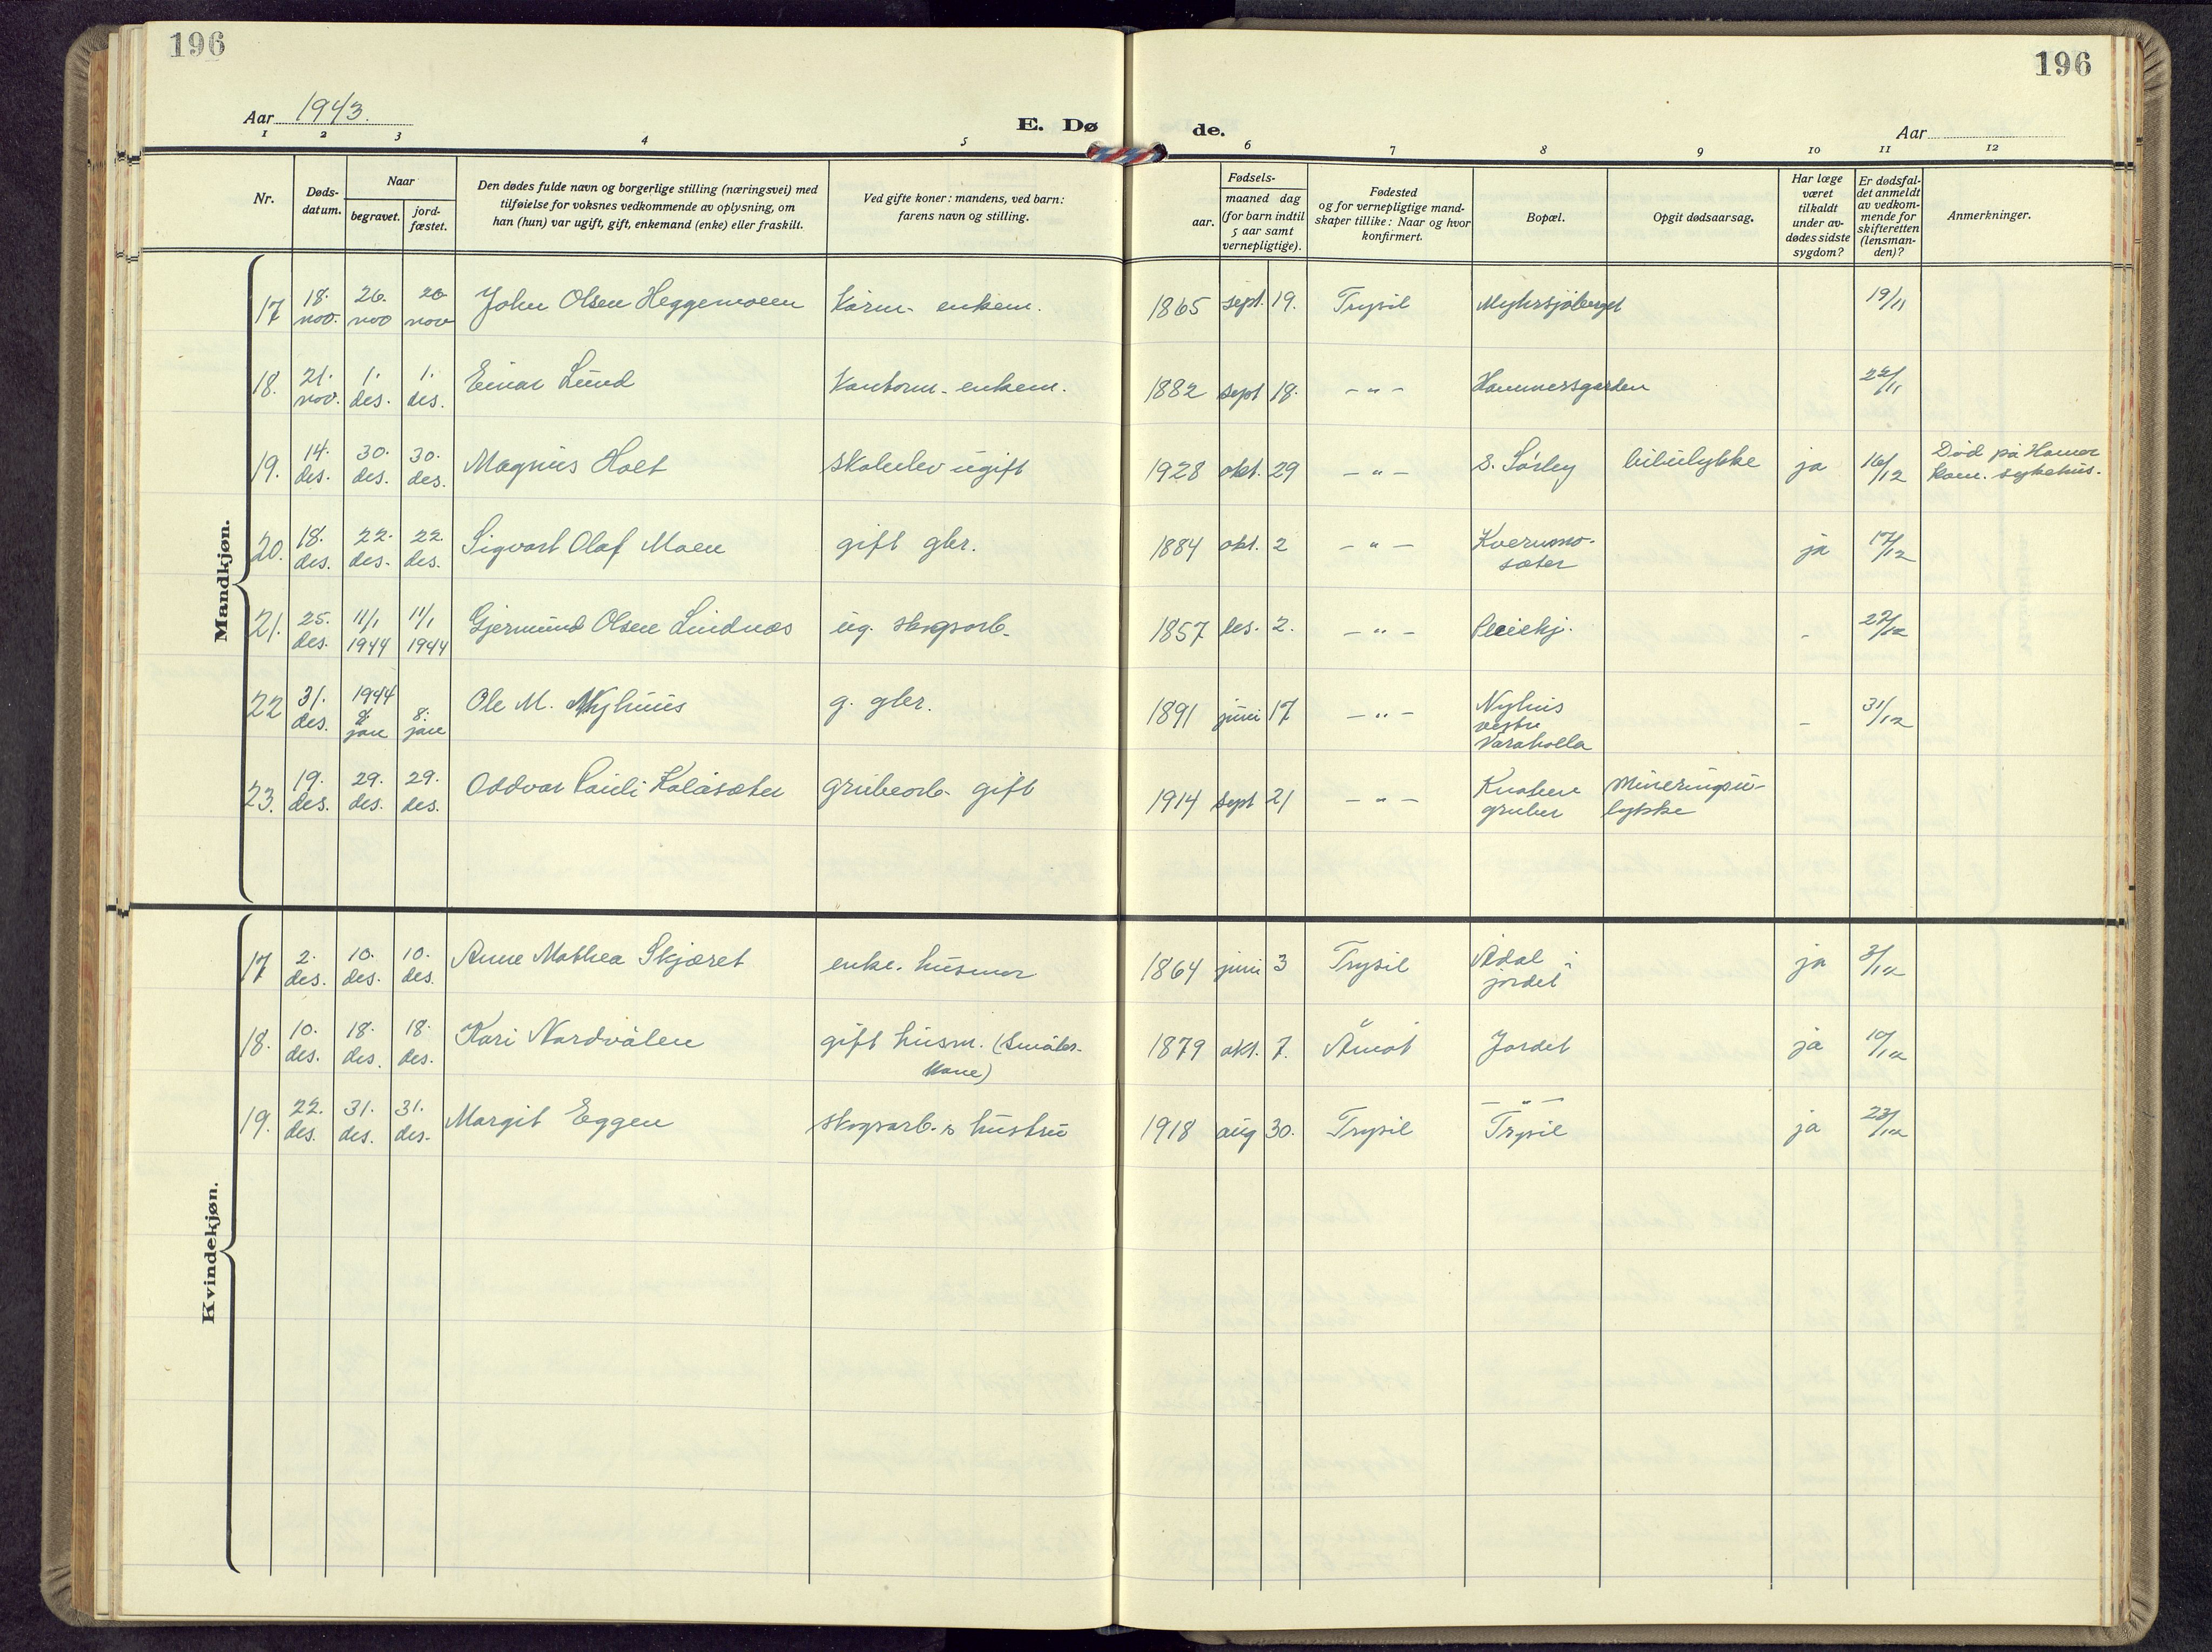 196
196
Aar 1943.
E. Dø
de.
Aar
1 2 3 4 5 6 7 8 9 10 11 12
Nr.
Døds-
datum.
Naar
begravet.
jord-
fæstet.
Den dødes fulde navn og borgerlige stilling (næringsvei) med
tilføielse for voksnes vedkommende av oplysning, om
han (hun) var ugift, gift, enkemand (enke) eller fraskilt.
Ved gifte koner: mandens, ved barn:
farens navn og stilling.
Fødsels-
aar.
maaned dag
(for barn indtil
5 aar samt
vernepligtige).
Fødested
og for vernepligtige mand-
skaper tillike: Naar og hvor
konfirmert.
Bopæl.
Opgit dødsaarsag.
Har læge
været
tilkaldt
under av-
dødes sidste
sygdom?
Er dødsfal-
det anmeldt
av vedkom-
mende for
skifteretten
(lensman-
den)?
Anmerkninger.
Mandkjøn.
17 18. nov. 26. nov 26 nov John Olsen Heggemoen Kårm. enkem. 1865 sept. 19. Trysil Myhrsjøberget 19/11
18. 21. nov. 1. des. 1. des. Einar Lund enkem. 1882 sept 18. - " - Hammersgarden 22/11
19. 14. des. 30. des. 30. des. Magnus Holt skoleelev ugift 1928 okt. 29 - " - S. Sørby bilulykke ja 16/12 Død på Hamar
kom. sykehus.
20. 18. des. 22. des. 22 des. Sigvart Olaf Moen gift gbr. 1884 okt. 2 - " - Kvernmo-
sæter ja 17/12
21. 25. des. 11/1 1944 11/1 1944 Gjermund Olsen Lindnæs ug. skogsarb. 1857 des. 2. - " - Pleiehj. - 27/12
22 31. des. 1944 8. jan 8. jan Ole M. Nyhuus g. gbr. 1891 juni 17 - " - Nyhus
vestre
Varaholla - 31/12
23. 19. des. 29. des. 29. des. Oddvar Pauli Kolåsæter grubearb. gift 1914 sept 21 - " - Knaben
gruber Mineringsu-
lykke
Kvindekjøn.
17 2. des. 10. des. 10. des. Anne Mathea Skjæret enke. husmor 1864 juni 3 Trysil Ådal i
jordet ja 3/12
18. 10. des. 18. des. 18. des. Kari Nordvålen gift husm. (småbr.
kone) 1879 okt. 7. Åmot Jordet ja 10/12
19. 22. des. 31. des. 31. des. Margit Eggen skogsarb.s hustru 1918 aug 30. Trysil - " -
Trysil ja 23/12